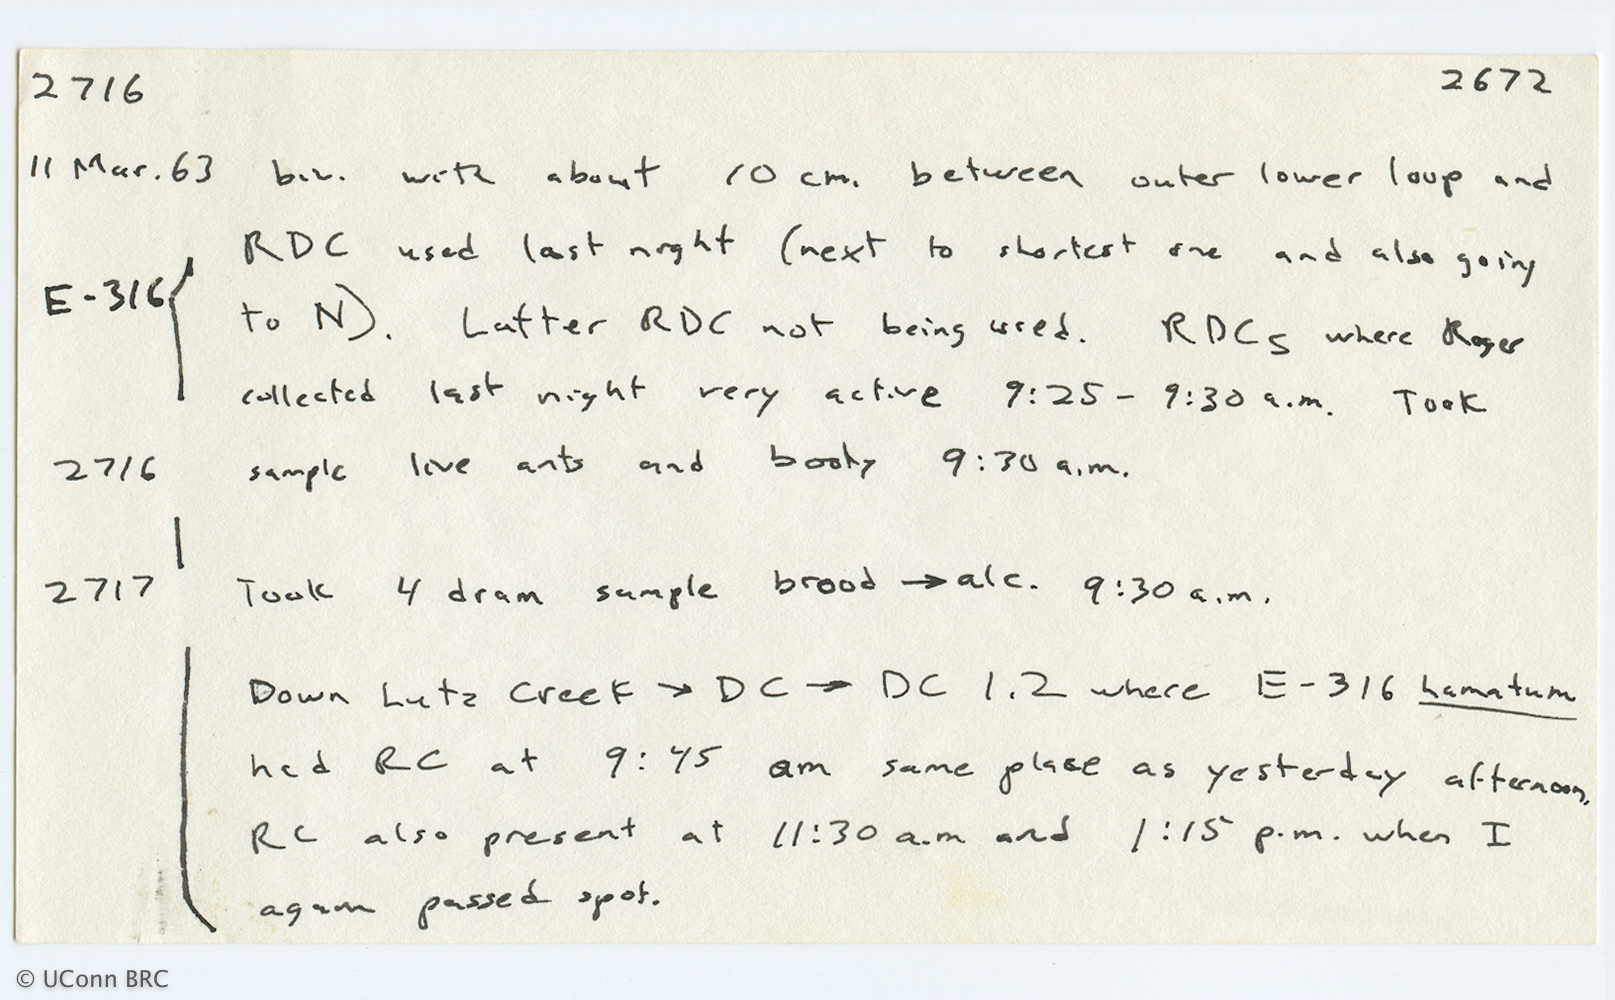 2716 2672
11 Mar. 63 biv. with about 10 cm. between outer lower loop and
RDC used last night (next to shortest one and also going
E-316 to N). Latter RDC not being used. RDCs where Roger
collected last night very active 9:25 - 9:30 a.m. Took
2716 sample live ants and booty 9:30 a.m.
2717 Took 4 dram sample brood → alc. 9:30 a.m.
Down Lutz Creek → DC → DC 1.2 where E-316 hamatum
had RC at 9:45 am same place as yesterday afternoon.
RC also present at 11:30 a.m and 1:15 p.m. when I
again passed spot.
© UConn BRC